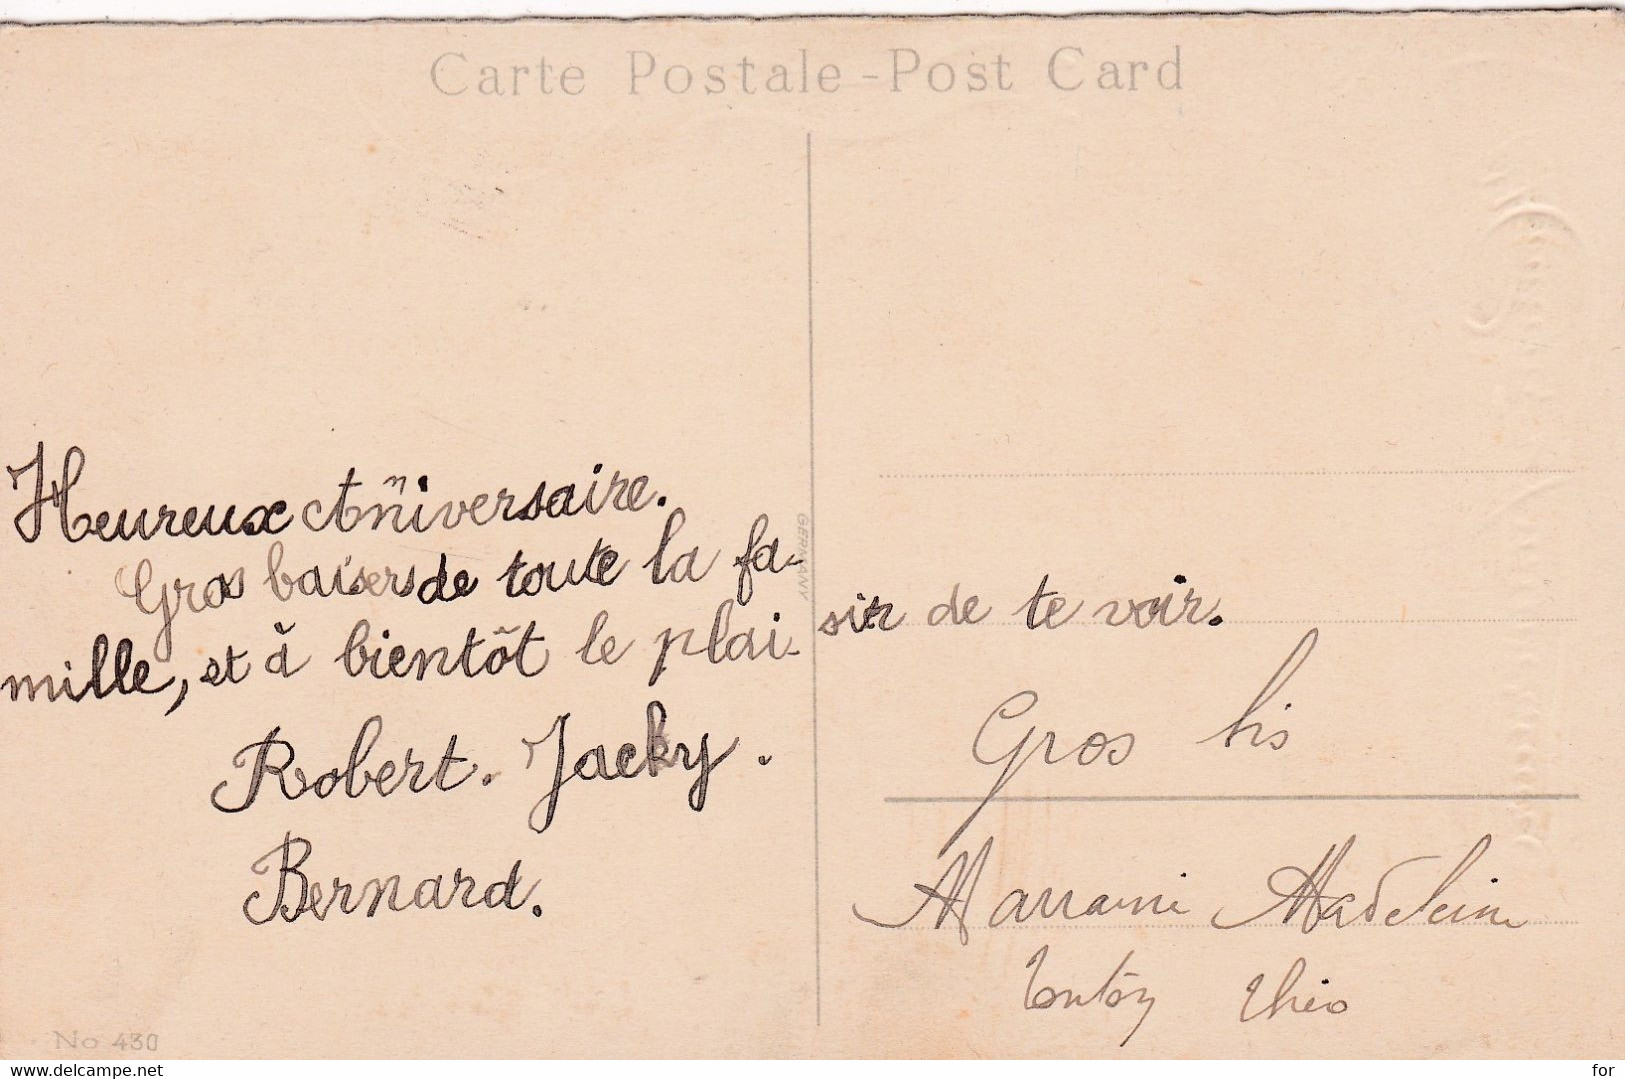 Carte Postale - Post Card
Heureux Anniversaire.
Gros baisers de toute la fa-
mille, et à bientôt le plai-
sir de te voir.
Robert. Jacky.
Bernard.
Gros bis
Marraine Madeleine
Tonton Théo
GERMANY
No 430
www.delcampe.net
for